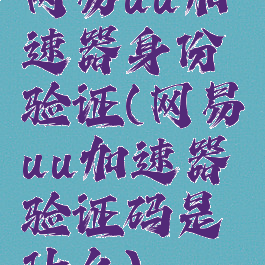 网易uu加
速器身份
验证(网易
uu加速器
验证码是
什么)